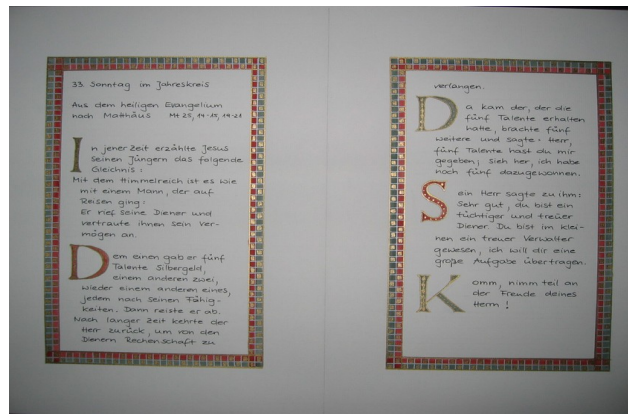 33. Sonntag im Jahreskreis
Aus dem heiligen Evangelium
nach Matthäus Mt 25, 14-15, 19-21
In jener Zeit erzählte Jesus
seinen Jüngern das folgende
Gleichnis:
Mit dem Himmelreich ist es wie
mit einem Mann, der auf
Reisen ging:
Er rief seine Diener und
vertraute ihnen sein Ver-
mögen an.
Dem einen gab er fünf
Talente Silbergeld,
einem anderen zwei,
wieder einem anderen eines,
jedem nach seinen Fähig-
keiten. Dann reiste er ab.
Nach langer Zeit kehrte der
Herr zurück, um von den
Dienern Rechenschaft zu
verlangen.
Da kam der, der die
fünf Talente erhalten
hatte, brachte fünf
weitere und sagte: Herr,
fünf Talente hast du mir
gegeben; sieh her, ich habe
noch fünf dazugewonnen.
Sein Herr sagte zu ihm:
Sehr gut, du bist ein
tüchtiger und treuer
Diener. Du bist im klei-
nen ein treuer Verwalter
gewesen, ich will dir eine
große Aufgabe übertragen.
Komm, nimm teil an
der Freude deines
Herrn!